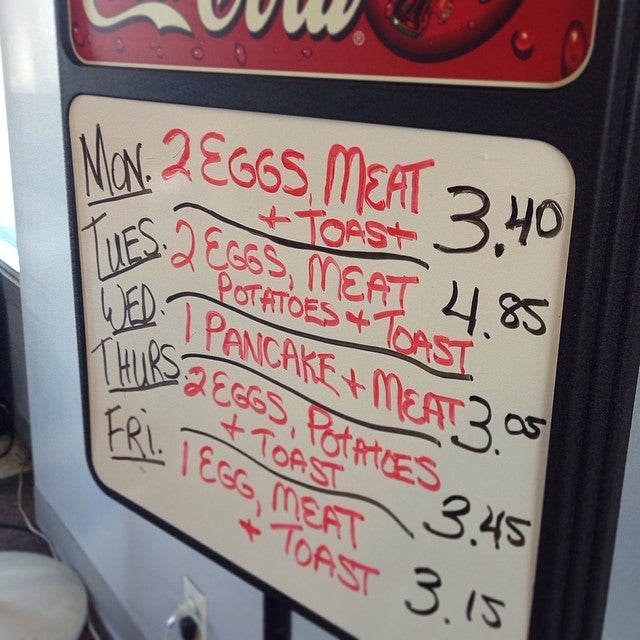 Coca-Cola ®
MON. 2 EGGS, MEAT
+ TOAST 3.40
TUES. 2 EGGS, MEAT
POTATOES + TOAST 4.85
WED. 1 PANCAKE + MEAT 3.05
THURS. 2 EGGS, POTATOES
+ TOAST 3.45
FRI. 1 EGG, MEAT
+ TOAST 3.15